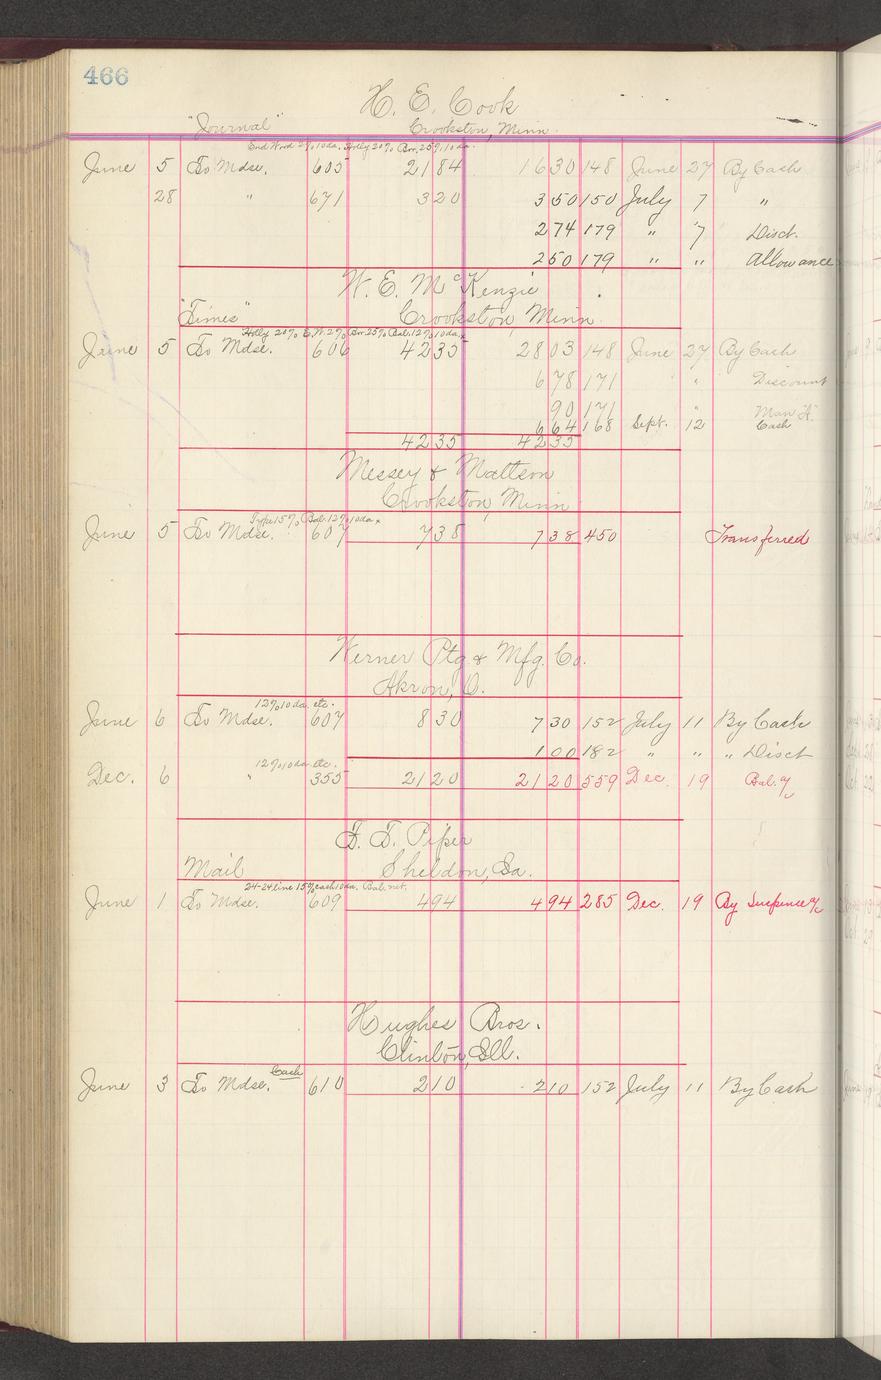 466
H. E. Cook
"Journal" Crookston, Minn.
End Wood 2% 10 da. Holly 20% Brr. 25% 10 da.
June 5 To Mdse. 605 21 84 16 30 148 June 27 By Cash
28 " 671 3 20 3 50 150 July 7 "
2 74 179 " 7 Disct.
2 50 179 " " Allowance
W. E. McKenzie
"Times" Crookston, Minn.
Holly 20% E.W. 2% Brr. 25% Bal. 12% 10 da.
June 5 To Mdse. 606 42 35 28 03 148 June 27 By Cash
6 78 171 " Discount
90 171 "
6 64 168 Sept. 12 Cash
42 35 42 35
Messey & Mattson
Crookston, Minn.
15% Bal. 12% 10 da.
June 5 To Mdse. 607 7 38 7 38 450 Transferred
Werner Ptg & Mfg. Co.
Akron, O.
12% 10 da. etc.
June 6 To Mdse. 607 8 30 7 30 152 July 11 By Cash
1 00 182 " " " Disct
12% 10 da. etc.
Dec. 6 " 355 21 20 21 20 559 Dec. 19 Bal. a/c
F. T. Piper
Mail Sheldon, Ia.
24-24 line 15% cash 10 da. Bal. net.
June 1 To Mdse. 609 4 94 4 94 285 Dec. 19 By Suspence a/c
Hughes Bros.
Clinton, Ill.
Cash
June 3 To Mdse. 610 2 10 2 10 152 July 11 By Cash